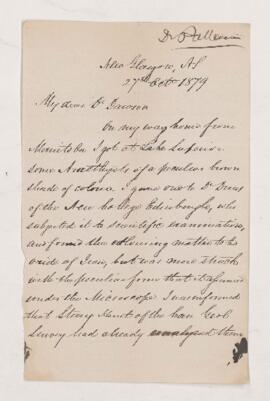 New Glasgow, N.S
27th Octr 1879
My dear Dr Dawson
On my way home from
Manitoba I got at Lake Superior
some Amethysts of a peculiar brown
shade of colour. I gave one to Dr Drew
of the New College Edinburgh, who
subjected it to scientific examination,
and found the colouring matter to be
oxide of Iron, but was more struck
with the peculiar form that it assumed
under the Microscope. I was informed
that Sterry Hunt of the Can Geol
Survey had already analyzed them